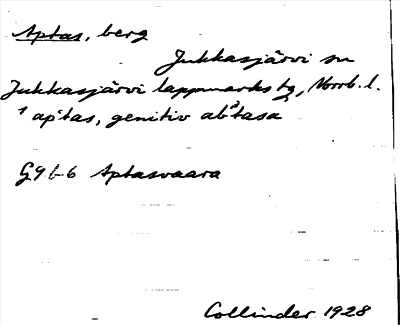 Aptas, berg
Jukkasjärvi sn
Jukkasjärvi lappmarks tg, Norrb. l.
apᵊtas, genitiv abᵊtasa
G9 b-6 Aptasvaara
Collinder 1928